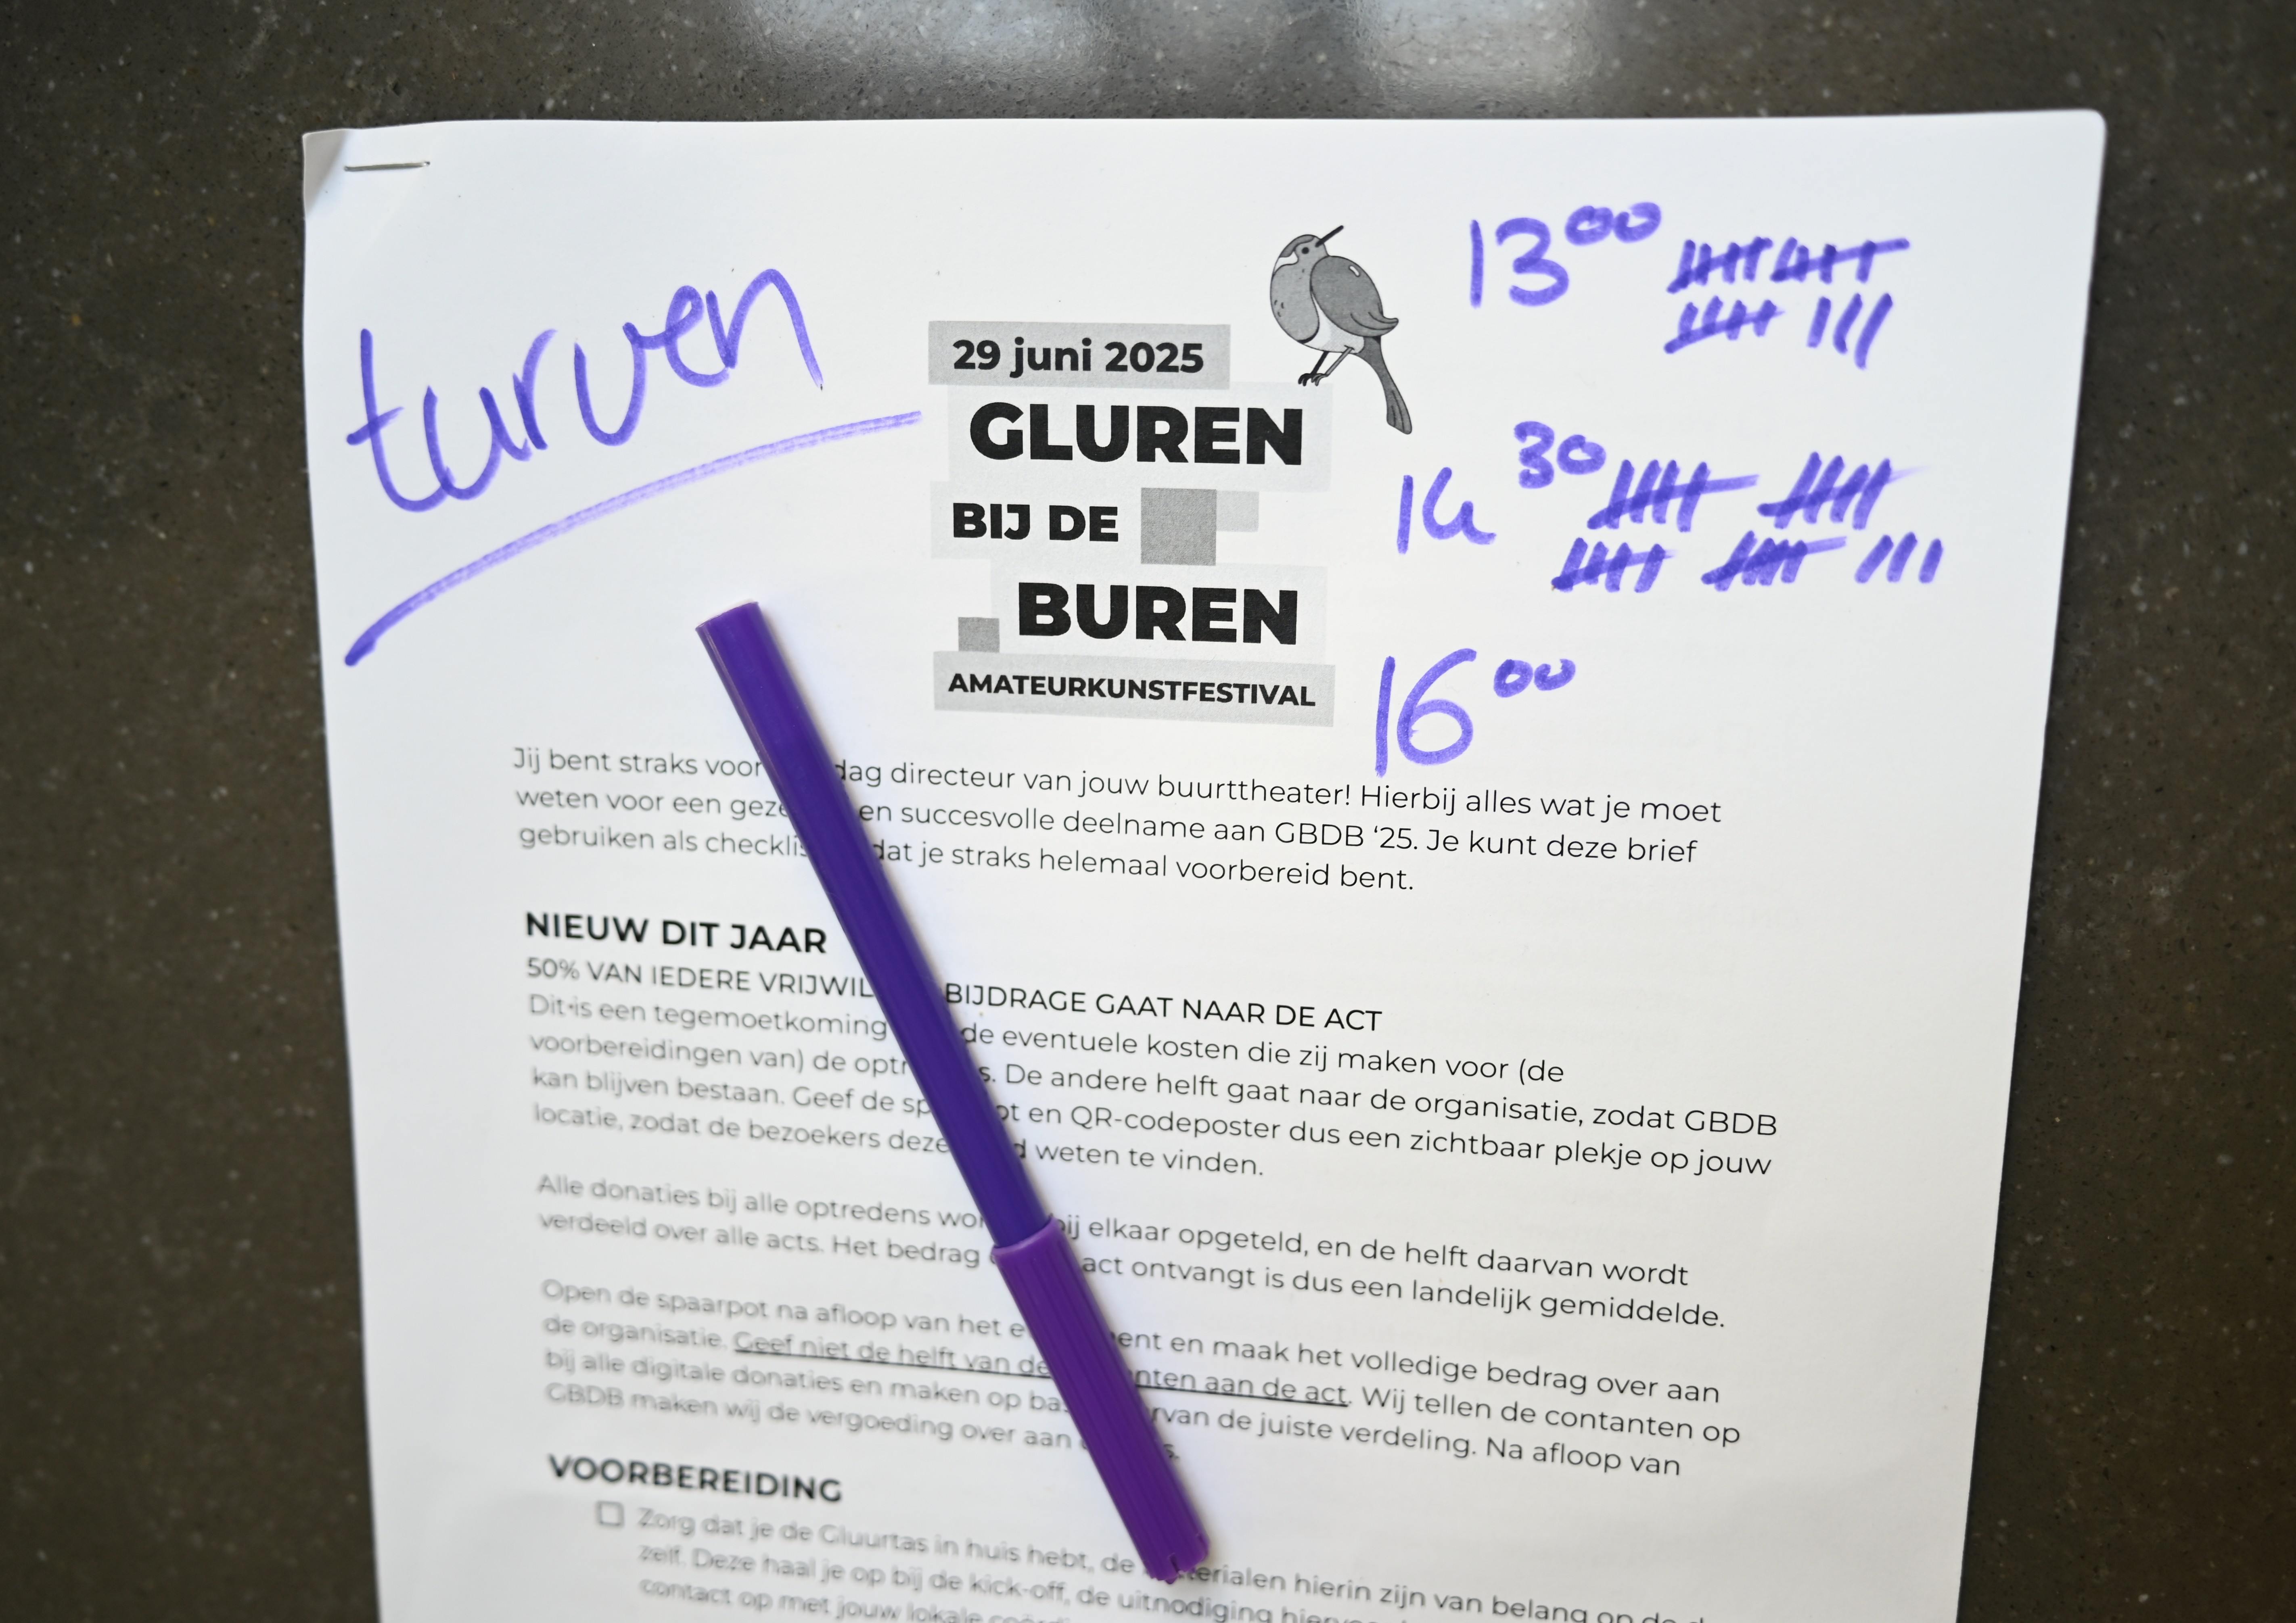 turven
13 00
14 30
16 00
29 juni 2025
GLUREN
BIJ DE
BUREN
AMATEURKUNSTFESTIVAL
Jij bent straks voor dag directeur van jouw buurttheater! Hierbij alles wat je moet
weten voor een en succesvolle deelname aan GBDB ‘25. Je kunt deze brief
gebruiken als dat je straks helemaal voorbereid bent.
NIEUW DIT JAAR
50% VAN IEDERE BIJDRAGE GAAT NAAR DE ACT
Dit is een tegemoetkoming de eventuele kosten die zij maken voor (de
voorbereidingen van) de De andere helft gaat naar de organisatie, zodat GBDB
kan blijven bestaan. Geef de en QR-codeposter dus een zichtbaar plekje op jouw
locatie, zodat de bezoekers deze weten te vinden.
Alle donaties bij alle optredens bij elkaar opgeteld, en de helft daarvan wordt
verdeeld over alle acts. Het bedrag act ontvangt is dus een landelijk gemiddelde.
Open de spaarpot na afloop van het en maak het volledige bedrag over aan
de organisatie. Geef niet de helft van de aan de act. Wij tellen de contanten op
bij alle digitale donaties en maken op de juiste verdeling. Na afloop van
GBDB maken wij de vergoeding over aan
VOORBEREIDING
Zorg dat je de Gluurtas in huis hebt, de hierin zijn van belang op de
zelf. Deze haal je op bij de kick-off, de uitnodiging
contact op met jouw lokale